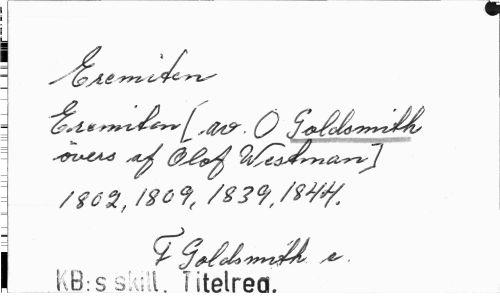 Eremiten
Eremiten [av. O Goldsmith
övers af Olof Westman]
1802, 1809, 1839, 1844.
F Goldsmith e.
KB:s skill. Titelreg.